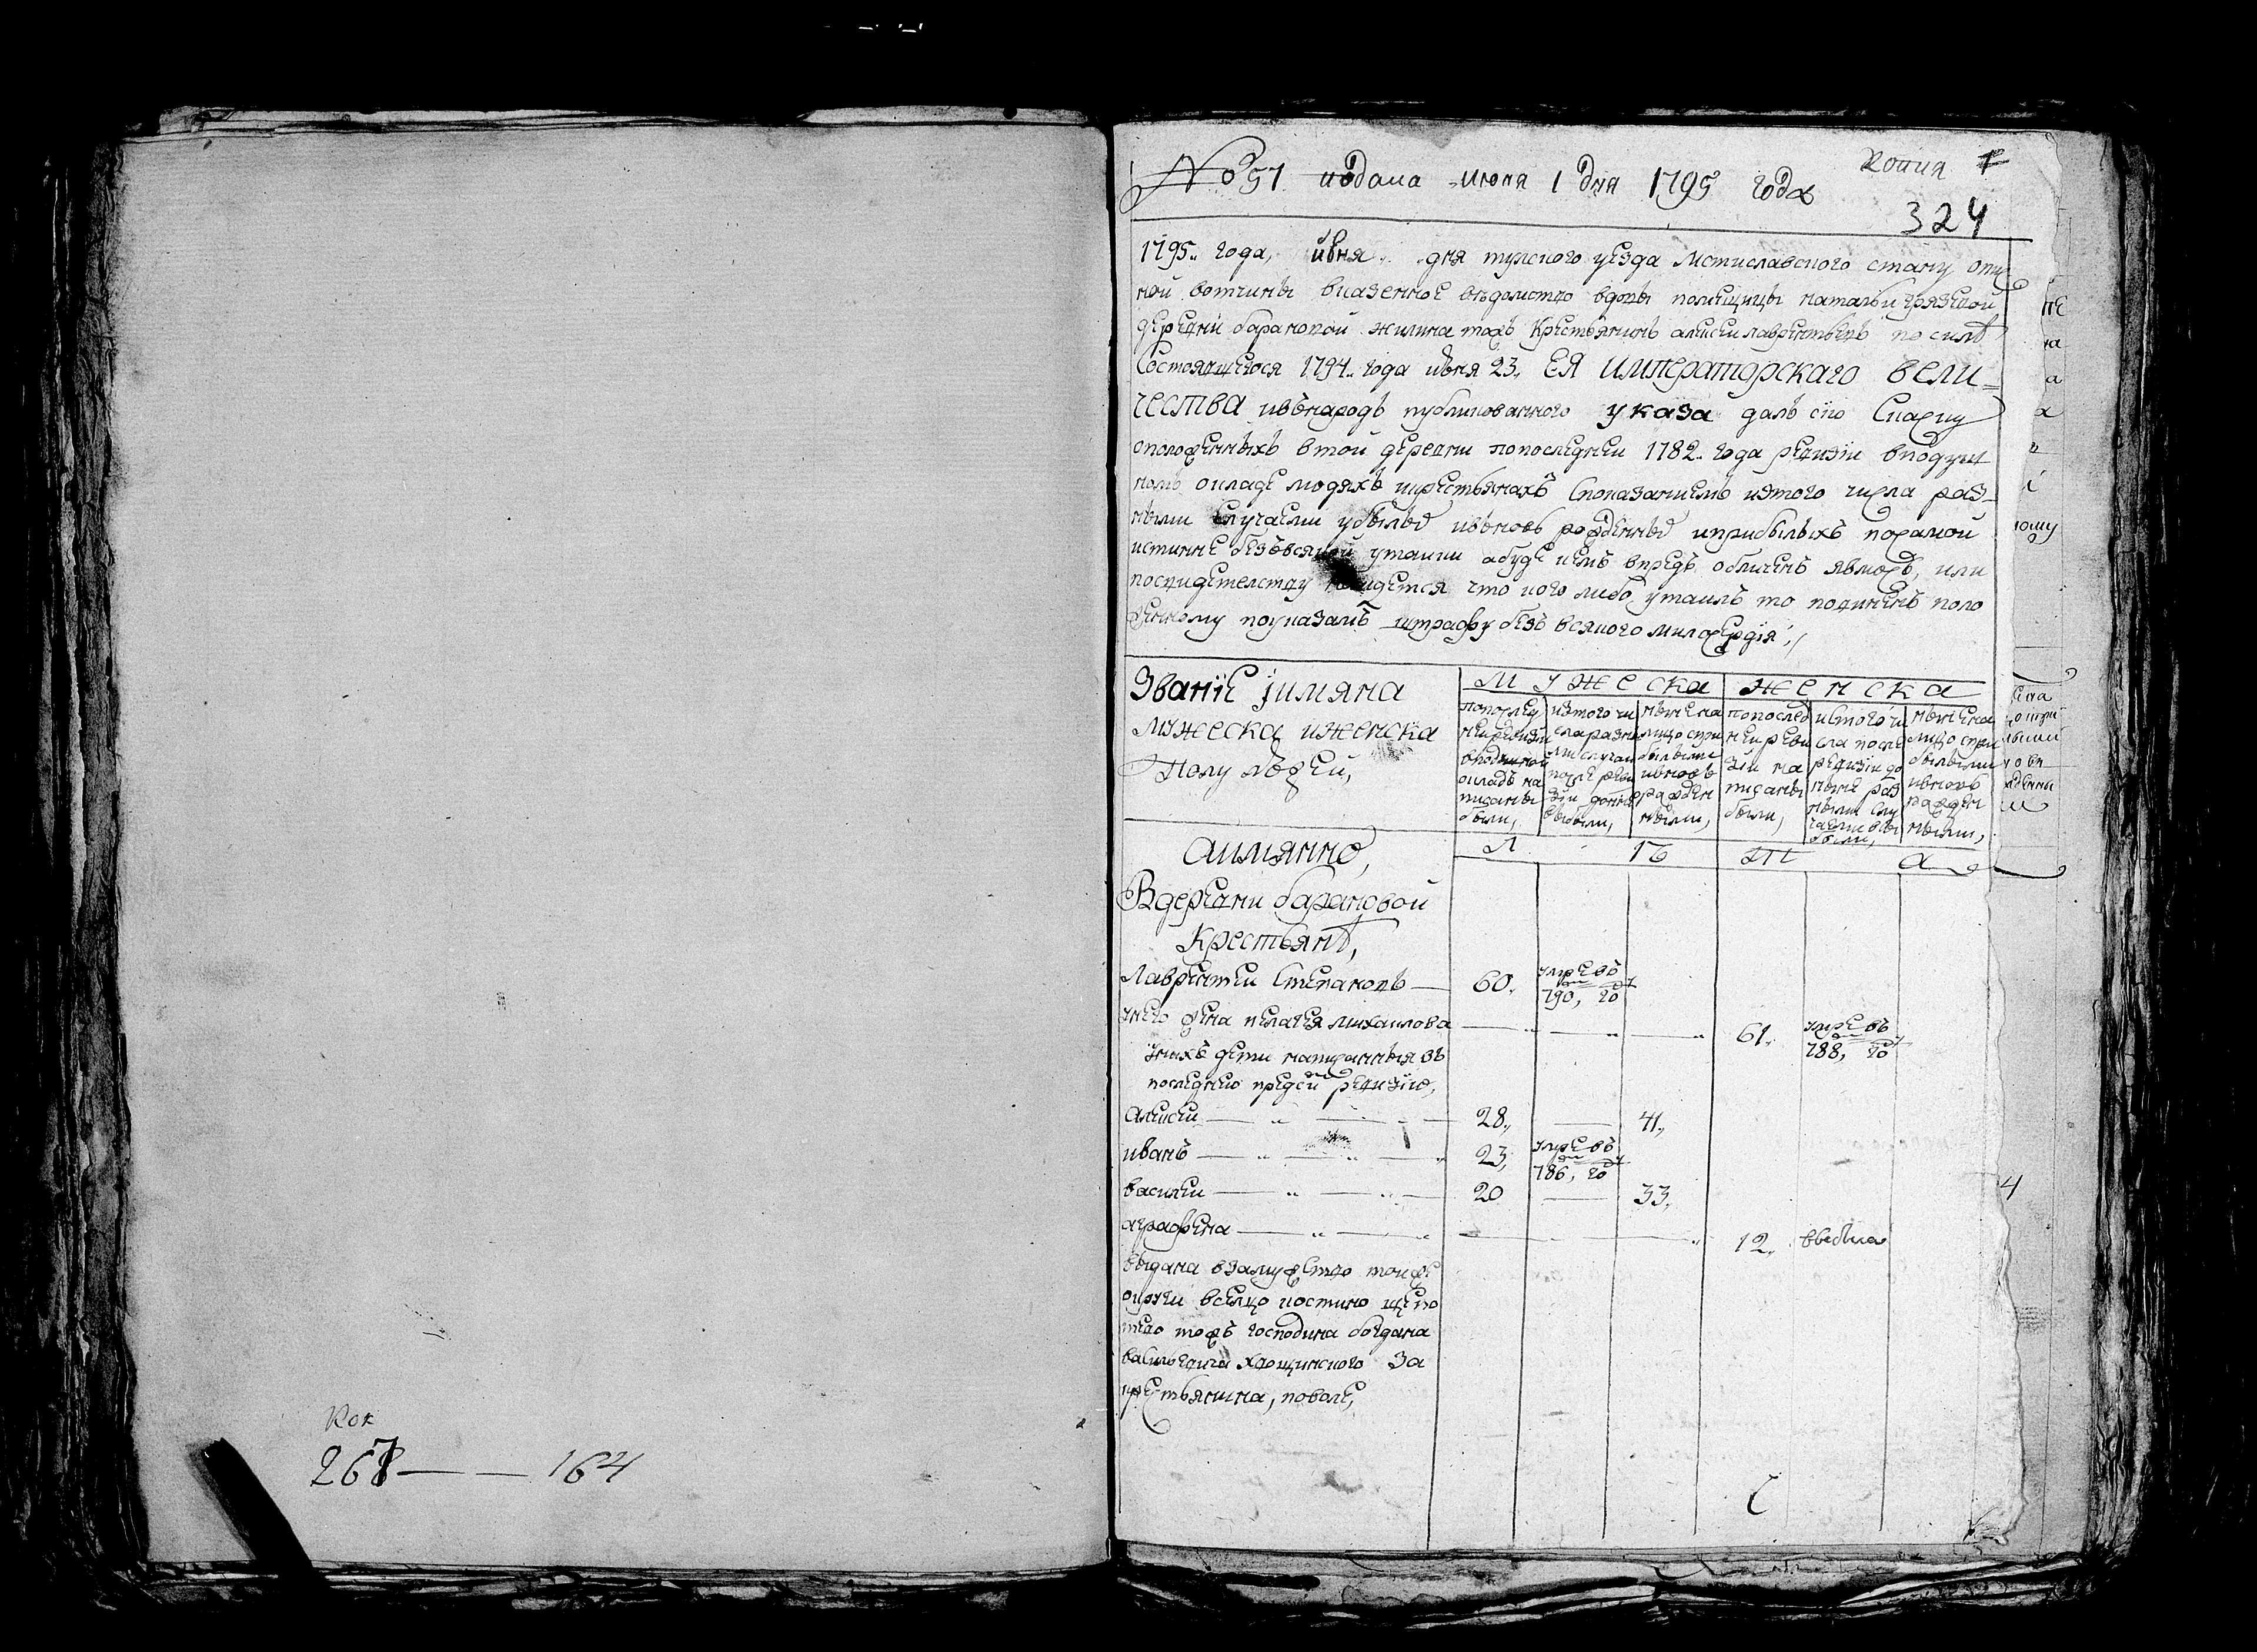 Коп
267 — — 164
№ 51 подана июня 1 дня 1795 года
Копия
324
1795„ года, июня „ дня тулского уезда мстиславского стану
ной вотчины вказенное ведомство вдовы помещицы натальи грязевой
деревни барановой жилина тожъ крестьянинъ алексеи лаврентьевъ по силе
состоявшегося 1794„ года июня 23„ ЕЯ ИМПЕРАТОРСКАГО ВЕЛИ-
ЧЕСТВА ивънародъ публикованного указа далъ сїю скаску
оположенныхъ втой деревни попоследнеи 1782„ года ревизїи вподуш
номъ окладе людяхъ икрестьянахъ споказаниемъ изтого числа раз-
ными случаеми убылые ивъновь рожденные иприбылыхъ посамой
истинне безъвсякой утаики абуде кемъ впредь обличенъ явлюсь, или
посвидетелству найдется что кого либо утаилъ то повиненъ поло
женному поуказамъ штрафу безъ всякого милосердїя,
Званїе їимяна
мужеска иженска
полу людей,
мужеска
женска
попослед
ней ревизїи
вподушной
окладъ на
писаны
были,
изтого чи
сла разны
ми случаи
после реви
зїи доныне
выбыли,
ныне на
лицо спри
былыми
ивновь
рожден
ными,
попослед
неи реви
зїи на
писаны
были,
истого чи
сла после
ревизїи до
ныне раз
ными слу
чаеми вы
были,
ныне на
лицо спри
былыми
ивновь
рожден
ными,
аимянно,
Л Ѣ Т А
Вдеревни барановой
крестьянъ,
Лаврентеи Степановъ — 60„ умре въ 790, го
унего жена пелагея михаилова — 61„ умре въ 788, го
унихъ дети написанныя въ
последнюю предъсимъ ревизїю,
алексеи — 28„ — 41„
иванъ — 23„ умре въ 786, го
василеи — 20 — 33„
аграфена — 12„ выбыла
выдана взамужство тойже
округи всельцо костино
тожъ господина богдана
васильевича хвощинского за
крестьянина, поволе,